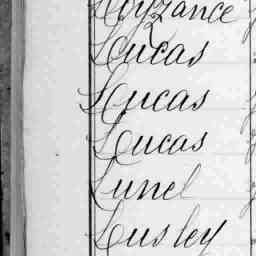 Loyzance
Lucas
Lucas
Lucas
Lunel
Lusley